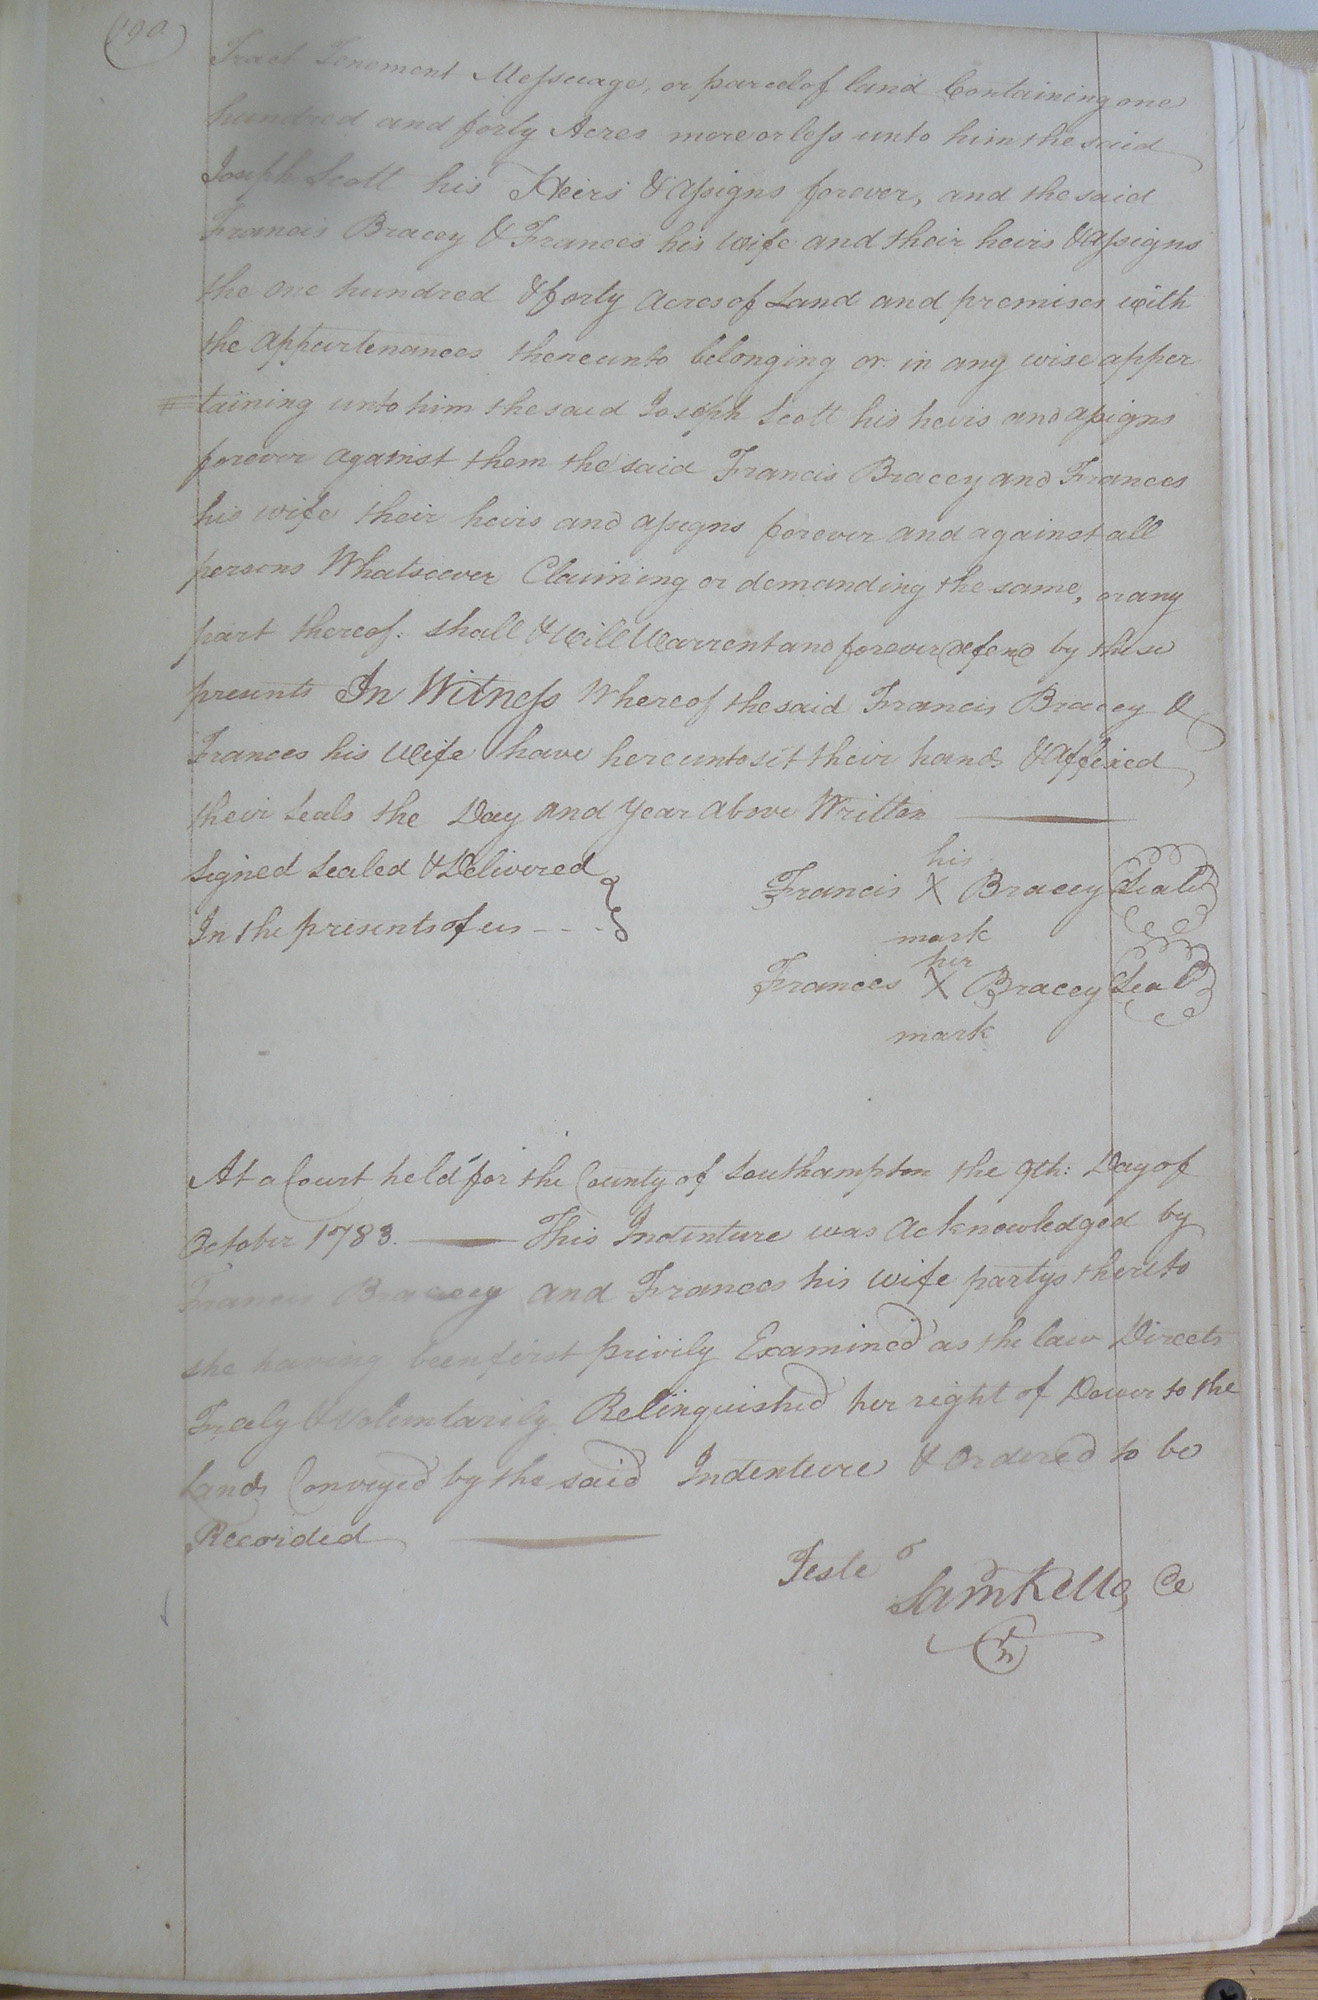 190
Tract Tenement Messuage, or parcel of land Containing one
hundred and forty Acres more or less unto him the said
Joseph Scott his Heirs & assigns forever, and the said
Francis Bracey & Frances his wife and their heirs & assigns
the one hundred & forty acres of Land and premises with
the appurtenances thereunto belonging or in any wise apper
= taining unto him the said Joseph Scott his heirs and assigns
forever against them the said Francis Bracey and Frances
his wife their heirs and assigns forever and against all
persons Whatsoever Claiming or demanding the same, or any
part thereof. shall & Will Warrent and forever defend by these
presents In Witness Whereof the said Francis Bracey &
Frances his Wife have hereunto set their hands & affixed
their Seals the Day and year above Written
Signed Sealed & Delivered
In the presents of us - - -
his
Francis X Bracey Seal
mark
her
Frances X Bracey Seal
mark
At a Court held for the County of Southampton the 9th: Day of
October 1783. This Indenture was acknowledged by
Francis Bracey and Frances his wife partys thereto
she having been first privily Examined as the law Directs
Freely & volentarily Relinquished her right of Dower to the
lands Conveyed by the said Indenture & Ordered to be
Recorded
Teste
Sam Kello,